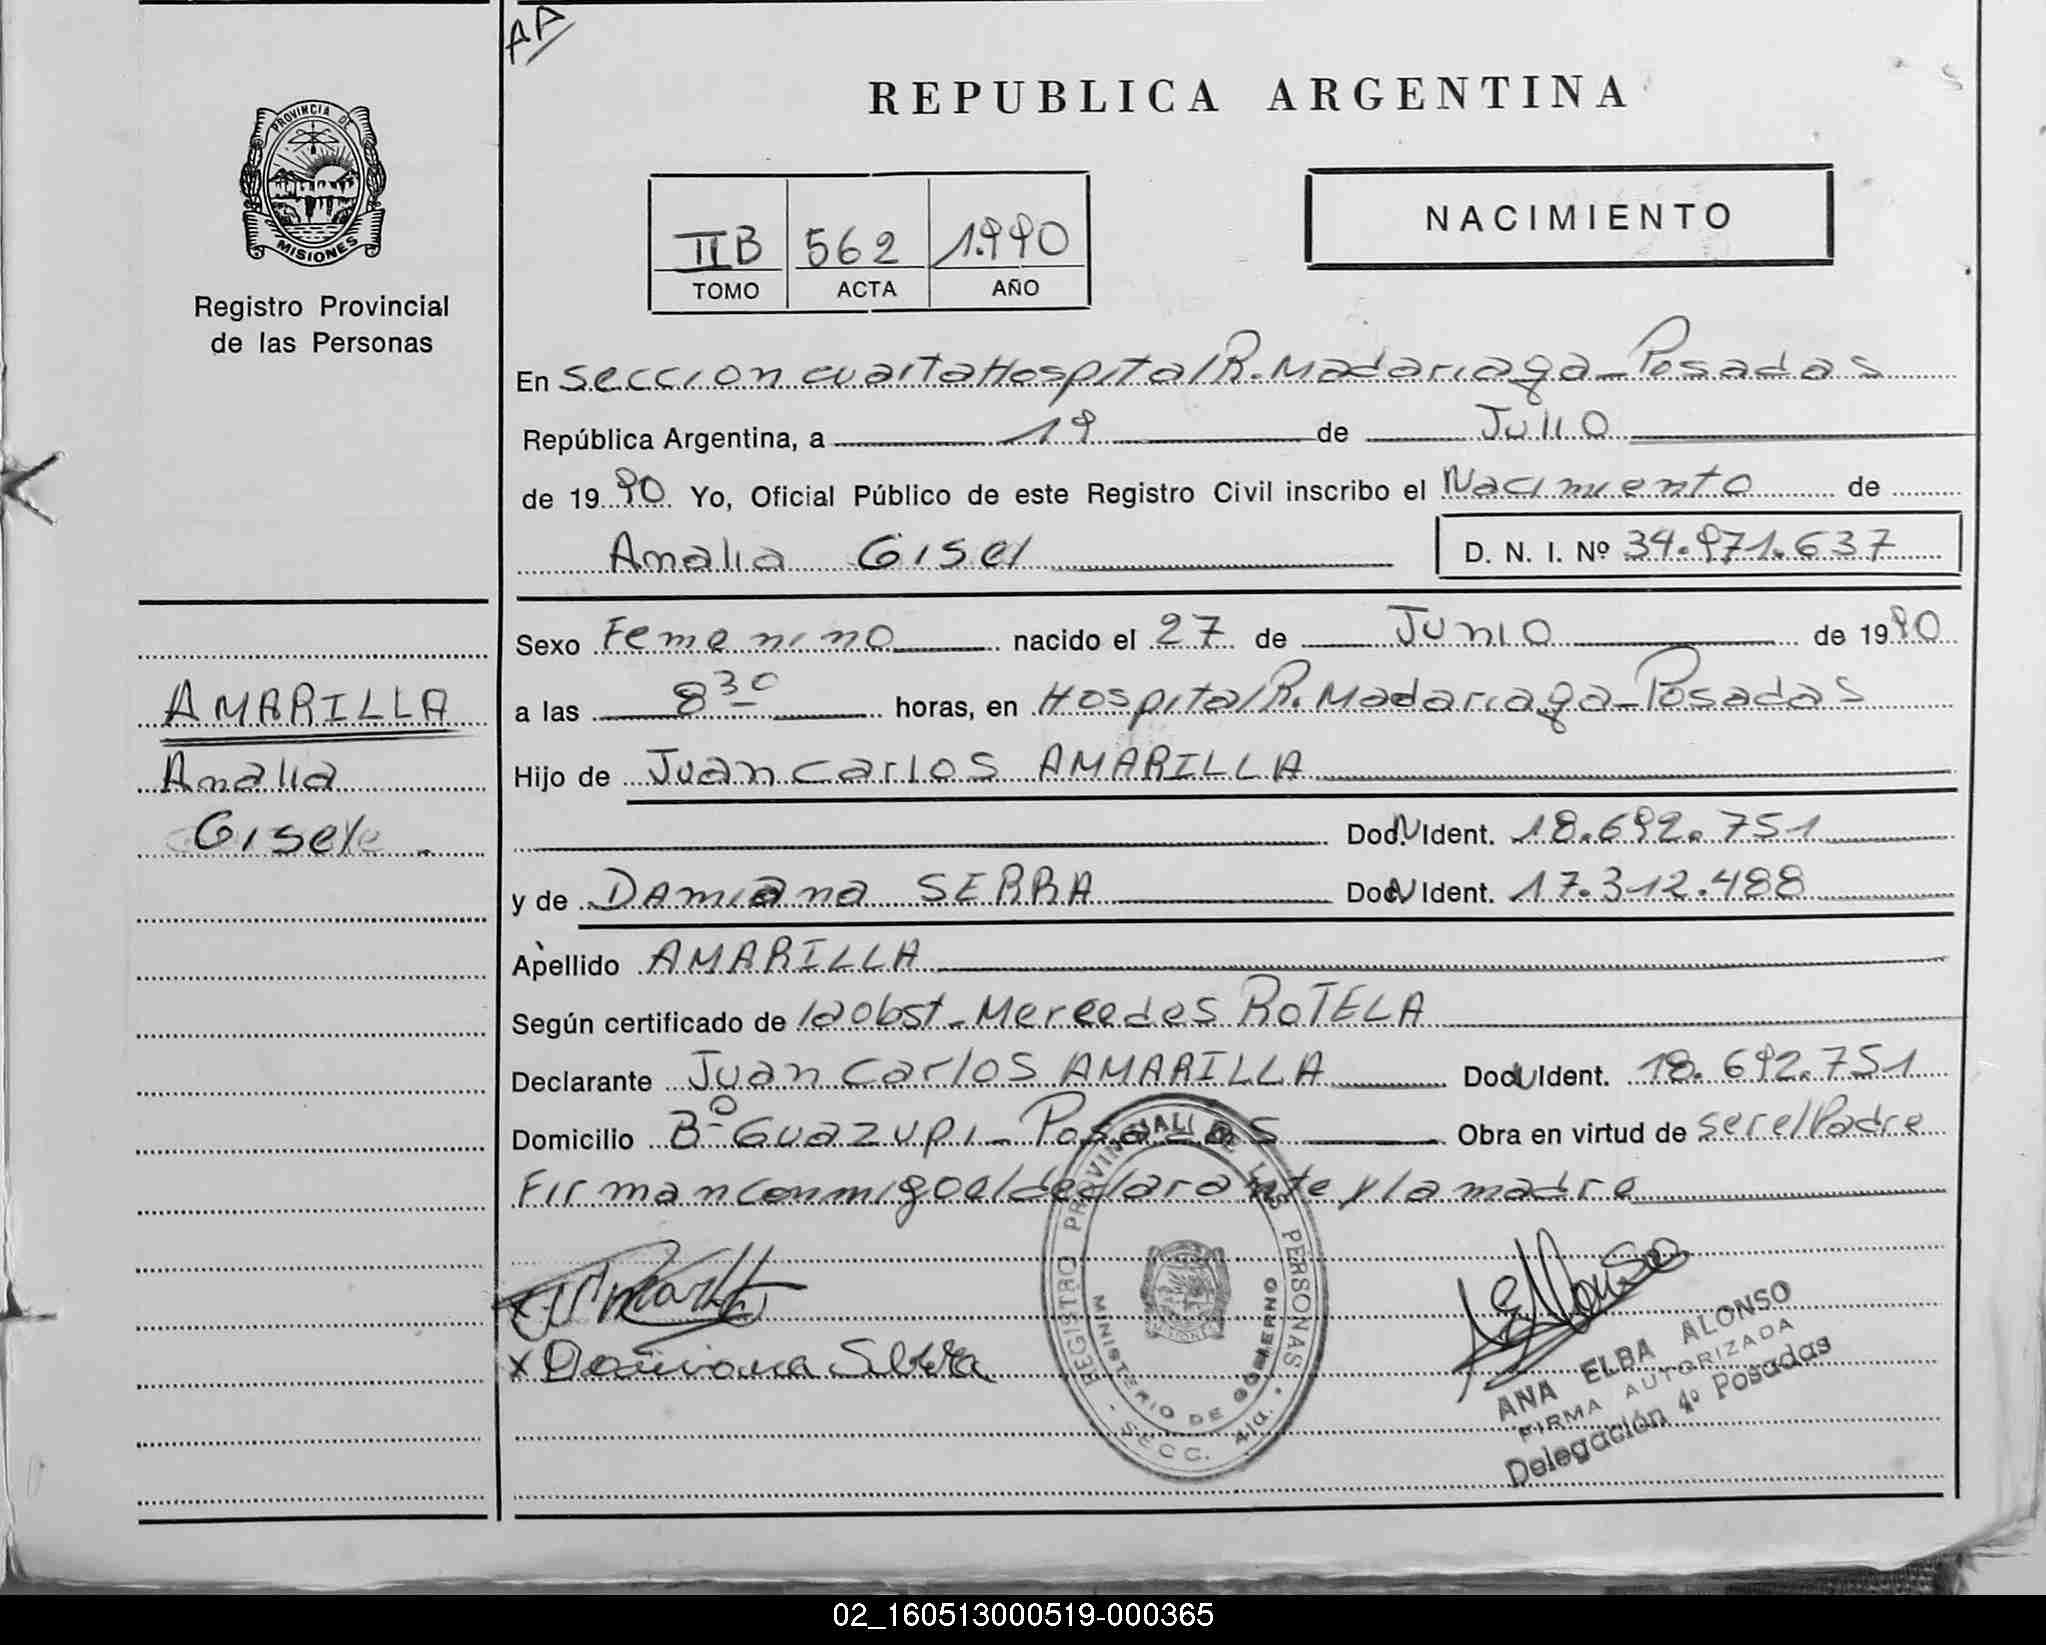 AA
REPUBLICA ARGENTINA
PROVINCIA DE
MISIONES
Registro Provincial
de las Personas
IIB 562 1.990
TOMO ACTA AÑO
NACIMIENTO
En Seccion cuarta Hospital R. Madariaga - Posadas
República Argentina, a 19 de Julio
de 1990 Yo, Oficial Público de este Registro Civil inscribo el Nacimiento de
Amalia Gisel D. N. I. Nº 34.971.637
Sexo Femenino nacido el 27 de Junio de 1990
a las 8 30 horas, en Hospital R. Madariaga - Posadas
Hijo de Juan Carlos AMARILLA
DocN Ident. 18.692.751
y de Damiana SERRA DocN Ident. 17.312.488
Apellido AMARILLA
Según certificado de la Obst - Mercedes ROTELA
Declarante Juan Carlos AMARILLA Doc Ident. 18.692.751
Domicilio Bº Guazupi - Posadas Obra en virtud de ser el Padre
Firman conmigo el declarante y la madre
AMARILLA
Amalia
Gisele
x
x Damiana Serra
REGISTRO PROVINCIAL DE LAS PERSONAS
MINISTERIO DE GOBIERNO
SECC. 4ta.
MISIONES
ANA ELBA ALONSO
FIRMA AUTORIZADA
Delegación 4º Posadas
02_160513000519-000365